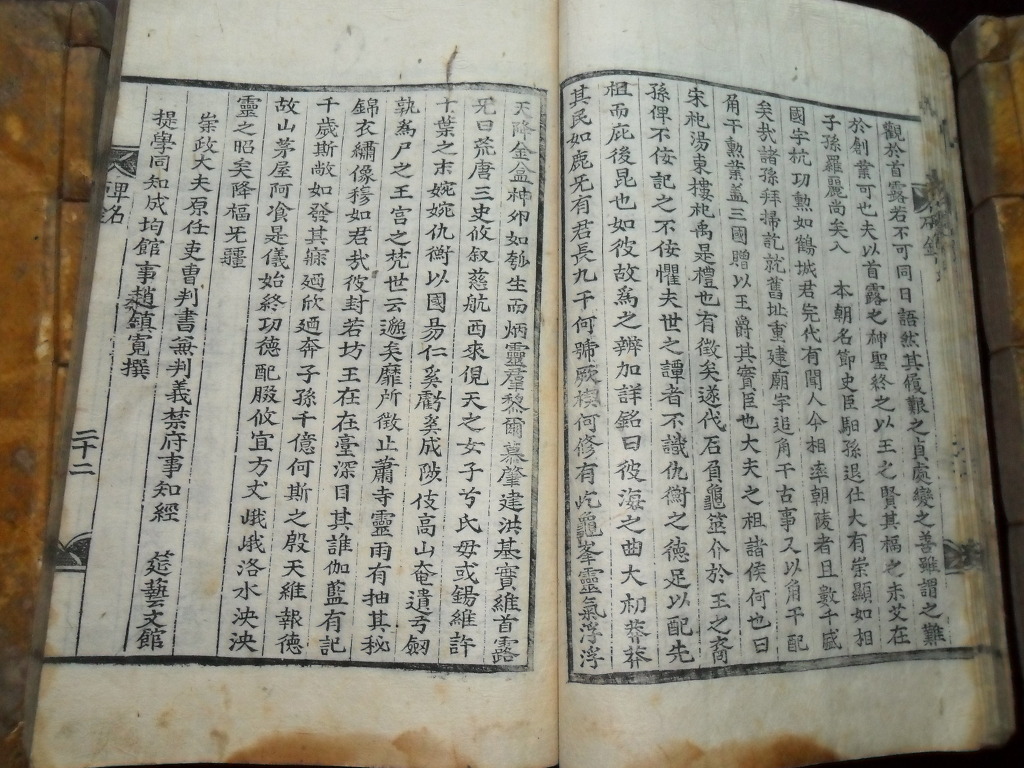 觀於首露若不可同日語然其履艱之貞處變之善雖謂之難
於創業可也夫以首露之神聖終之以王之賢其福之未艾在
子孫羅麗尚矣入 本朝名節史臣馹孫退仕大有崇顯如相
國宇杭功勲如鶴城君完代有聞人今相率朝陵者且數千咸
矣哉諸孫拜掃訖就舊址重建廟宇追角干古事又以角干配
角干勲業蓋三國贈以王爵其實臣也大夫之祖諸侯何也曰
宋祀湯東樓祀禹是禮也有徴矣遂伐石負龜簉介於王之裔
孫俾不侫記之不侫懼夫世之譚者不識仇衡之徳足以配先
祖而庇後昆也如彼故爲之辨加詳銘曰彼海之曲大初莽莽
其民如鹿旡有君長九千何號厥何修有屹龜峯靈氣浮浮
天降金盒柿卵如瓠生而炳靈羣黎爾慕肇建洪基實維首露
旡曰荒唐三史攸叙慈航西來俔天之女子兮氏母或錫維許
十葉之末婉婉仇衡以國易仁奚虧奚成陟伎高山奄遺弓劒
孰爲尸之王宫之梵世云邈矣靡所徴止蕭寺靈雨有抽其秘
錦衣繡像穆如君㢤彼封若坊王在在臺深目其誰伽藍有記
千歳斯敞如發其寐廼欣廼奔子孫千億何斯之殷天維報徳
故山茅屋阿飡是儀始終功徳配腏攸宜方丈峨峨洛水泱泱
靈之昭矣降福旡疆
崇政大夫原任吏曹判書兼判義禁府事知經 筵藝文館
提學同知成均館事趙鎮寛撰
碑銘
二十二